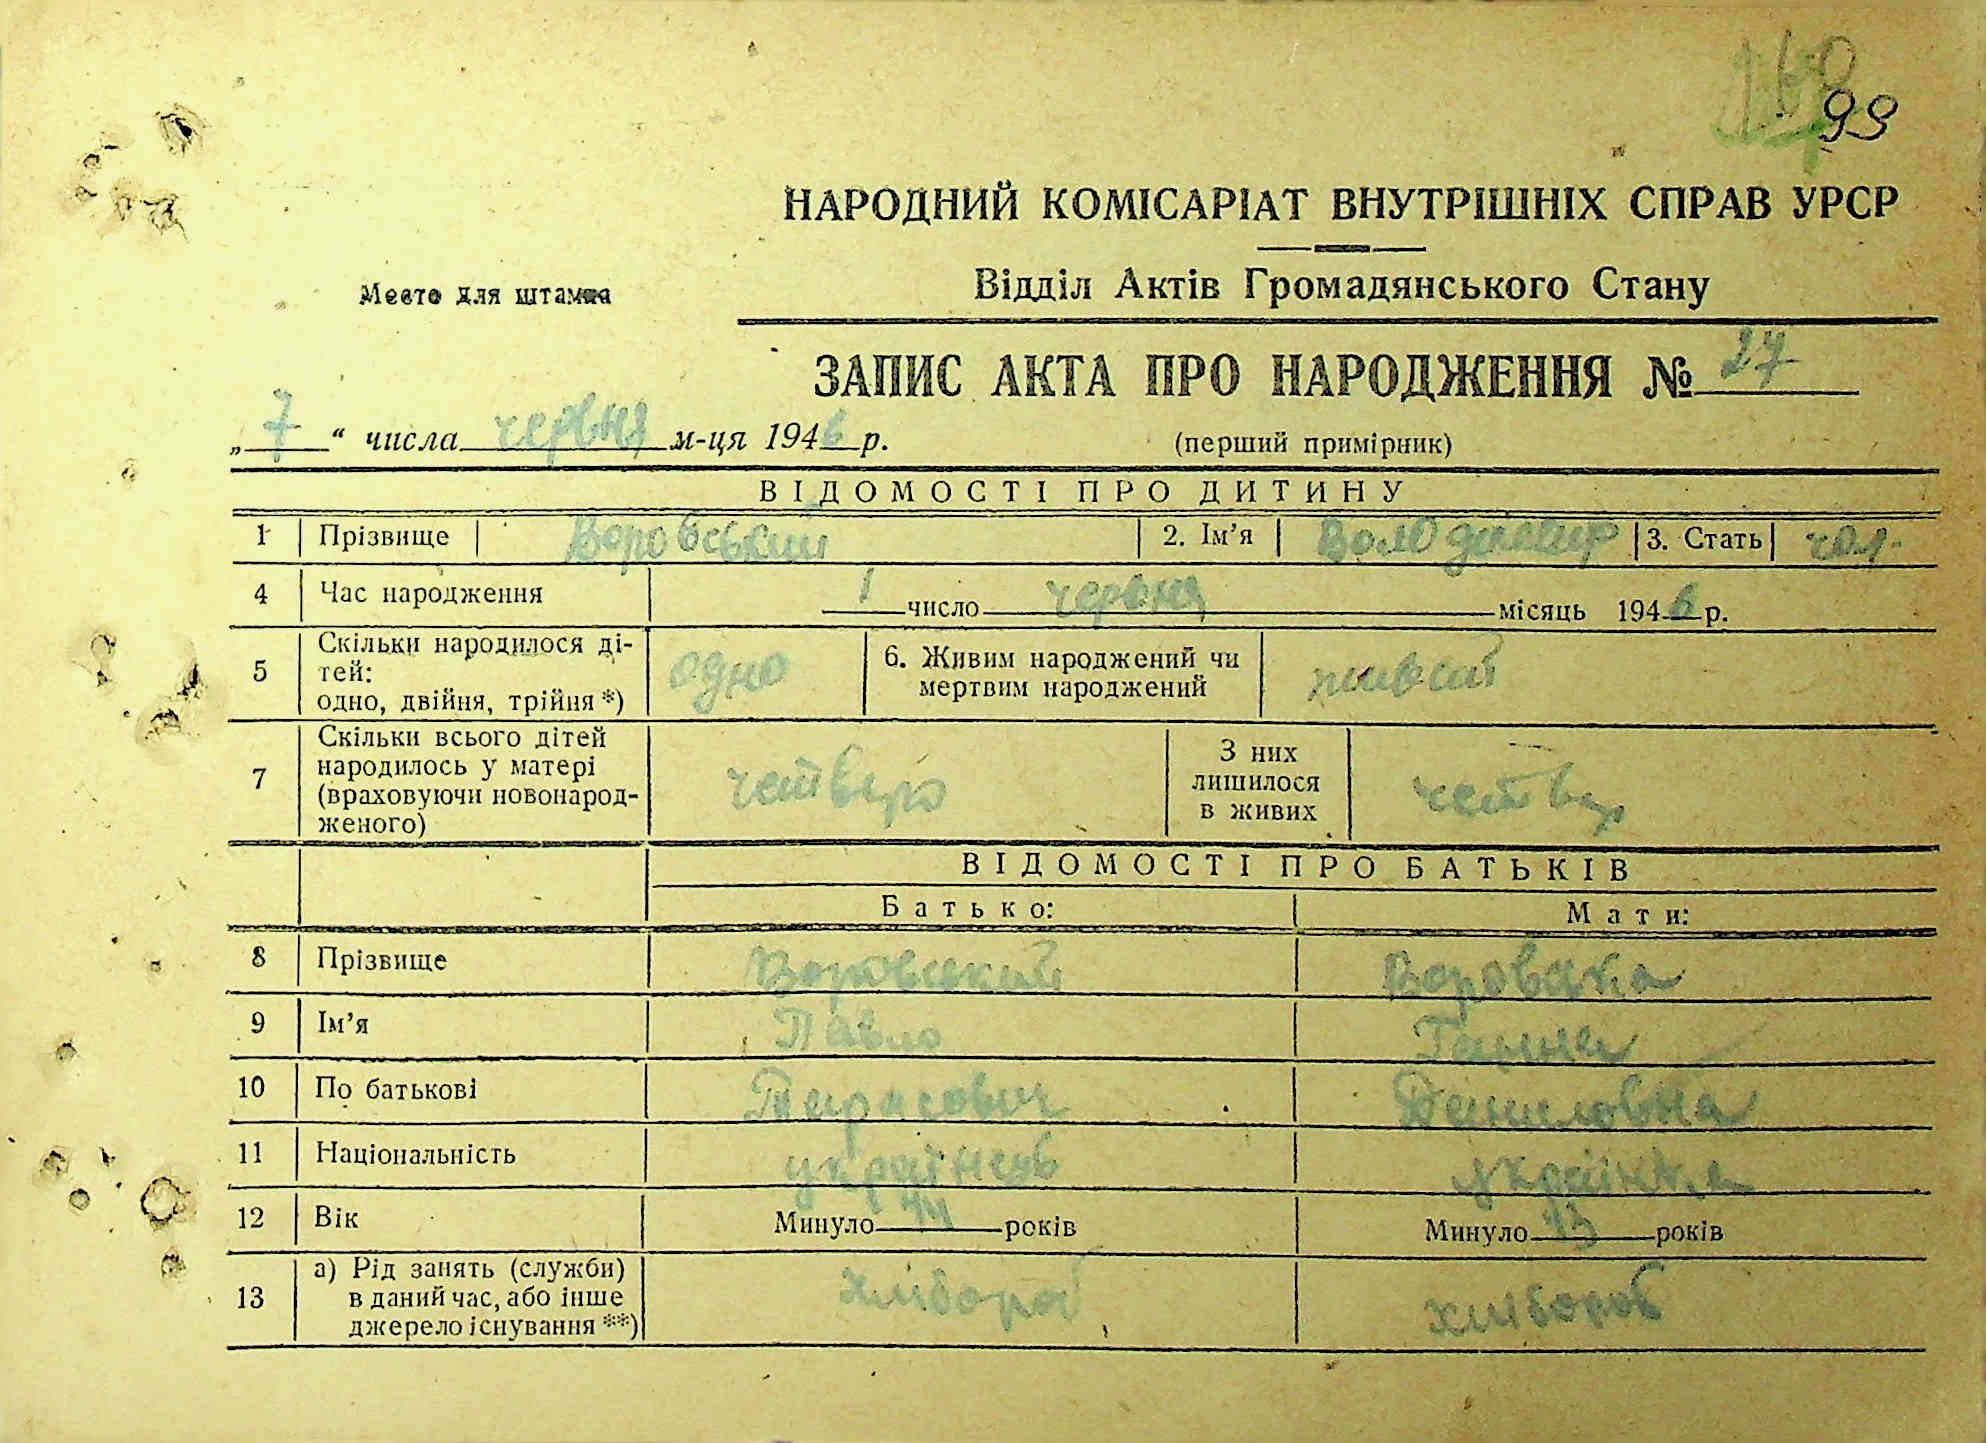 160
99
НАРОДНИЙ КОМІСАРІАТ ВНУТРІШНІХ СПРАВ УРСР
Место для штампа
Відділ Актів Громадянського Стану
ЗАПИС АКТА ПРО НАРОДЖЕННЯ № 27
„7“ числа червня м-ця 1946 р. (перший примірник)
ВІДОМОСТІ ПРО ДИТИНУ
1 Прізвище Воровський 2. Ім’я Володимир 3. Стать чол.
4 Час народження 1 число червня місяць 1946 р.
5 Скільки народилося ді-
тей:
одно, двійня, трійня *) одно 6. Живим народжений чи
мертвим народжений живий
7 Скільки всього дітей
народилось у матері
(враховуючи новонарод-
женого) четверо З них
лишилося
в живих четвер
ВІДОМОСТІ ПРО БАТЬКІВ
Батько: Мати:
8 Прізвище Воровський Воровська
9 Ім’я Павло Ганна
10 По батькові Тарасович Даниловна
11 Національність українець українка
12 Вік Минуло 44 років Минуло років
13 а) Рід занять (служби)
в даний час, або інше
джерело існування **) хлібороб хлібороб